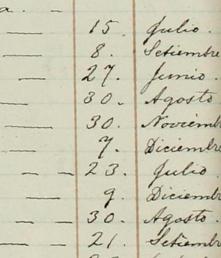 a.
— 15. Julio.
— 8. Setiembre
— 27. Junio.
— 30. Agosto
— 30. Noviembre
— 7. Diciembre
— — 23. Julio.
— 9. Diciembre
— 30. Agosto.
— 21. Setiembre